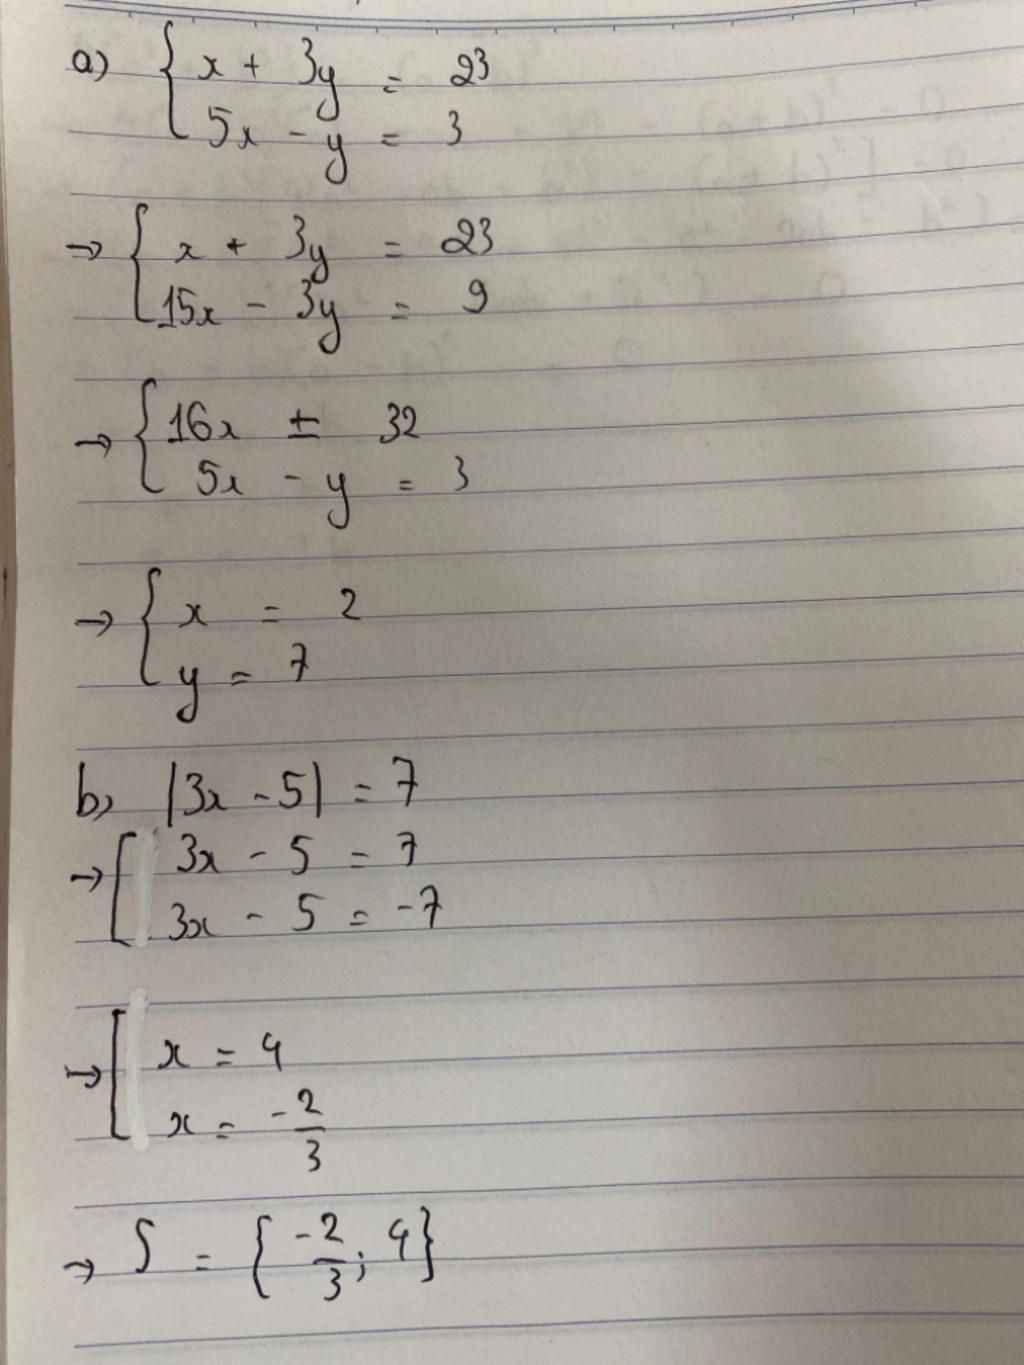 a) { x + 3y = 23
5x - y = 3
→ { x + 3y = 23
15x - 3y = 9
→ { 16x ± 32
5x - y = 3
→ { x = 2
y = 7
b) |3x - 5| = 7
→ [ 3x - 5 = 7
3x - 5 = -7
→ [ x = 4
x = -2/3
→ S = { -2/3 ; 4 }